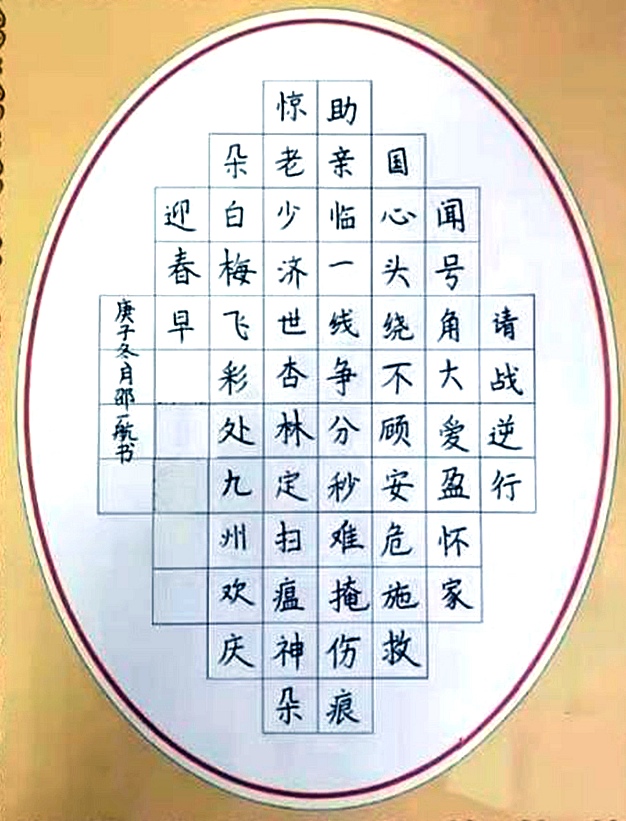 请战逆行
闻号角大爱盈怀家
国心头绕不顾安危施救
助亲临一线争分秒难掩伤痕
惊老少济世杏林定扫瘟神朵
朵白梅飞彩处九州欢庆
迎春早
庚子冬月邵一航书